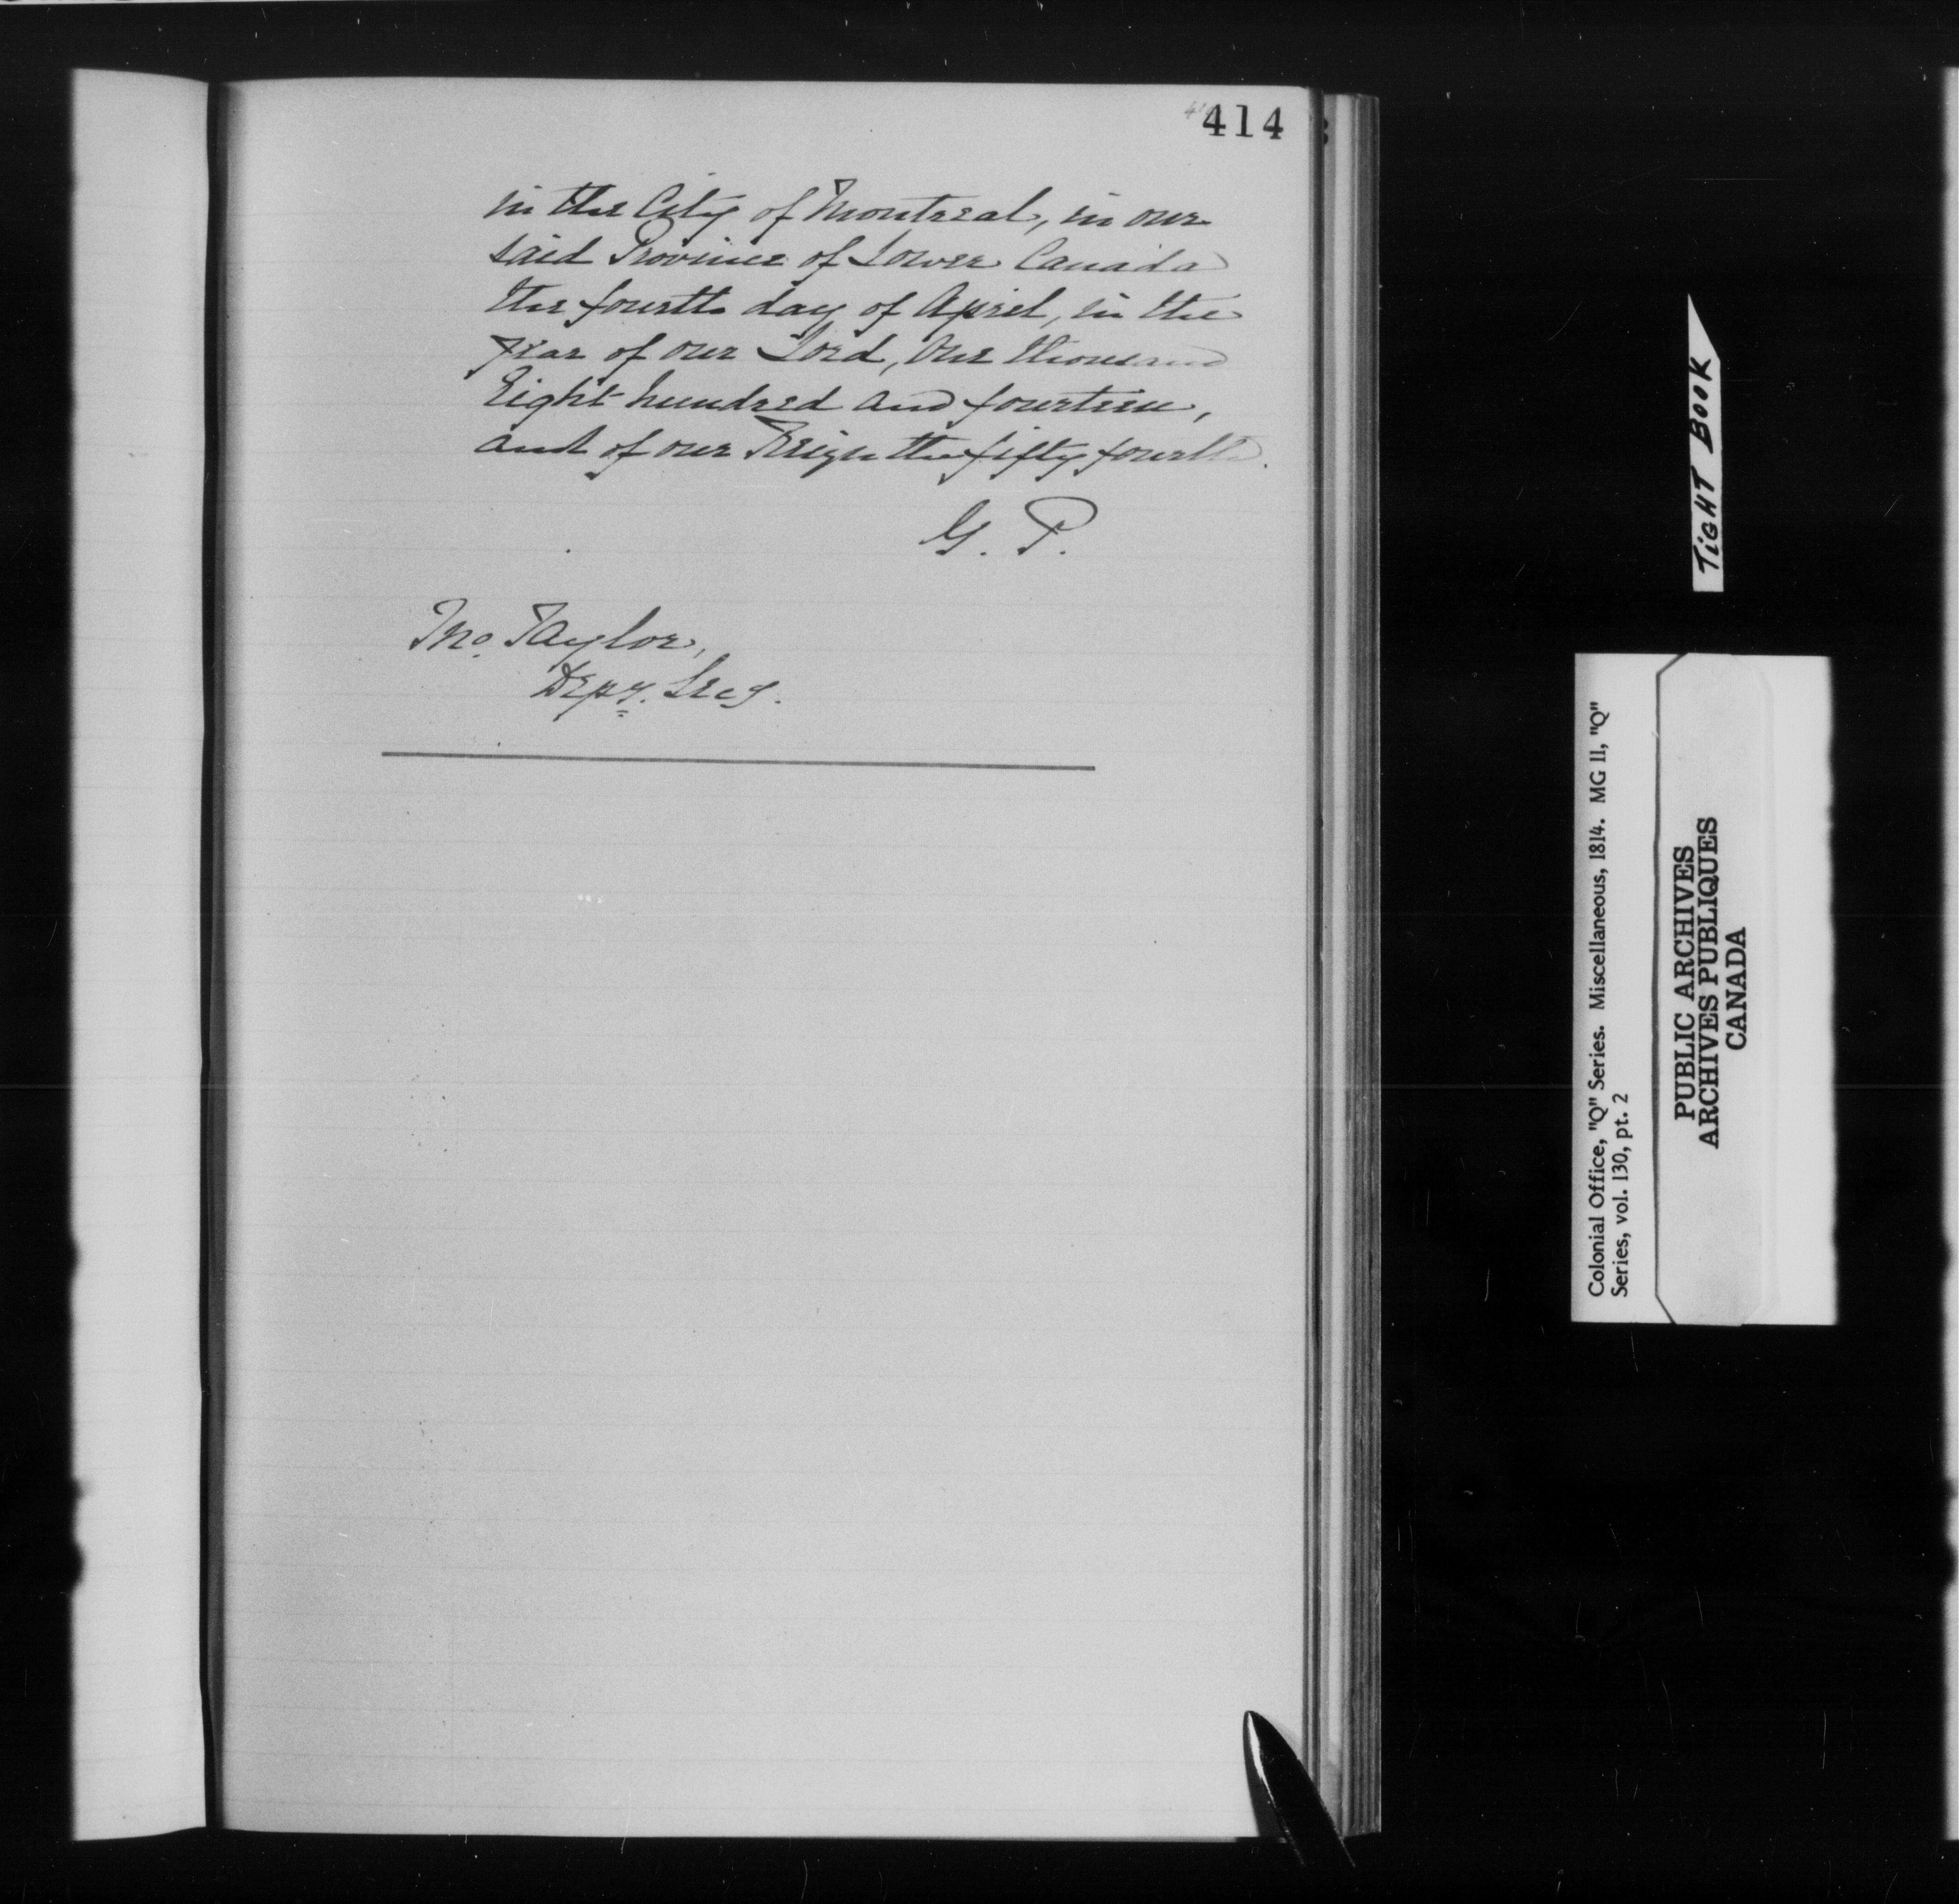 414
in the City of Montreal, in our
said Province of Lower Canada
the fourth day of April, in the
year of our Lord, One thousand
Eight hundred and fourteen,
and of our Reign the fifty fourth.
G. P.
Jno. Taylor,
Depy. Secy.
TIGHT BOOK
Colonial Office, "Q" Series. Miscellaneous, 1814. MG 11, "Q"
Series, vol. 130, pt. 2
PUBLIC ARCHIVES
ARCHIVES PUBLIQUES
CANADA